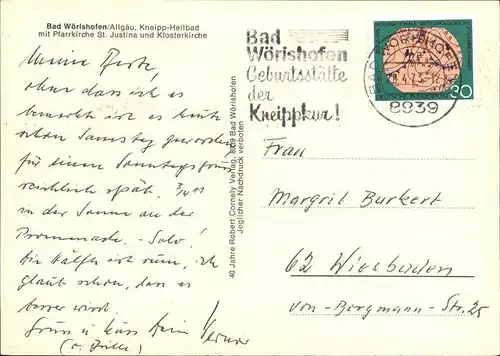 Bad Wörishofen/Allgäu, Kneipp-Heilbad
mit Pfarrkirche St. Justina und Klosterkirche
Meine
ohne dass ich es
bemerkte ist es heute
schon Samstag geworden
für einen Sonntagsgruss
reichlich spät. 3/4 11
in der Sonne an der
Promenade - Solo!
Die Hälfte ist rum, ich
glaub schon, dass es
besser wird.
Gruss u. Kuss Dein Werner
40 Jahre Robert Cornely Verlag, 8939 Bad Wörishofen
Jeglicher Nachdruck verboten
Bad
Wörishofen
Geburtsstätte
der
Kneippkur!
BAD WÖRISHOFEN
8939
30
Frau
Margrit Burkert
62 Wiesbaden
von-Bergmann-Str. 25